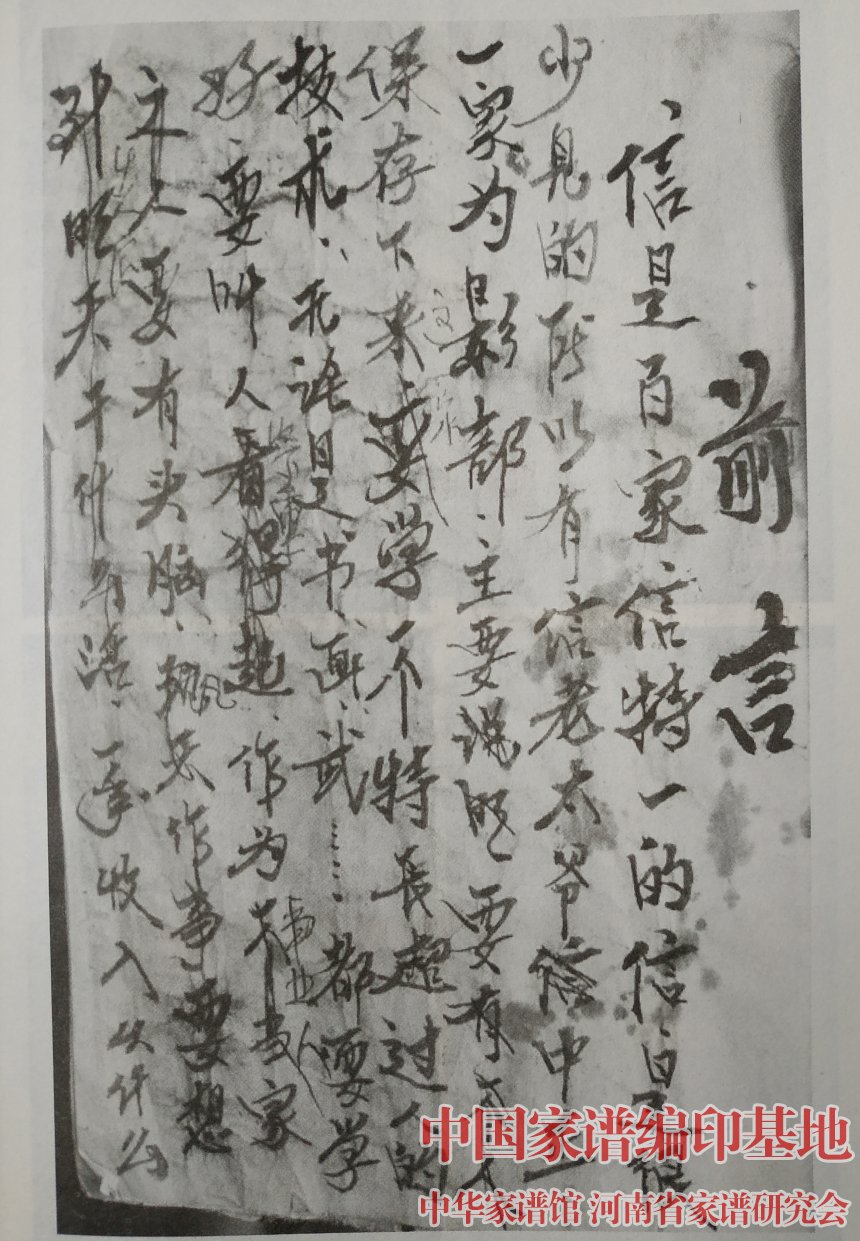 前言
信是百家信特一的信、是
少见的所以有信老太爷信中一
一家为影部、主要说明、要有
保存下来要学一个特长超过人的
技术、无论是书、画、武……都要学
好、要叫人看得起、作为当家
事业人
之人要有头脑、执 作事、要想
到明天干什么活、一年收入从什么
中国家谱编印基地
中华家谱馆 河南省家谱研究会